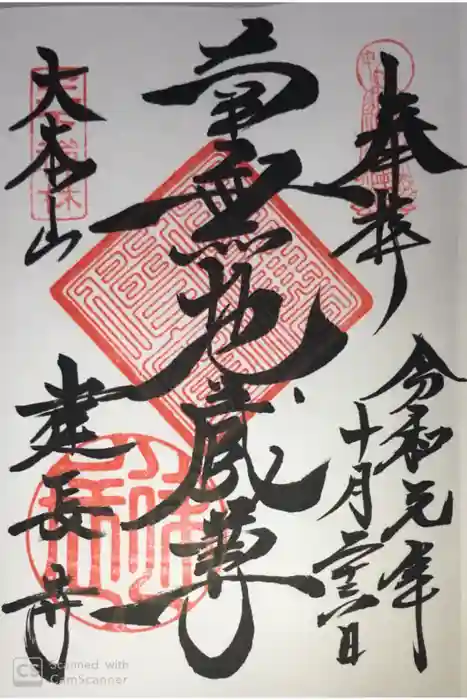 奉拝
令和元年
十月二十六日
南無地蔵尊
大本山
建長寺
CS Scanned with
CamScanner